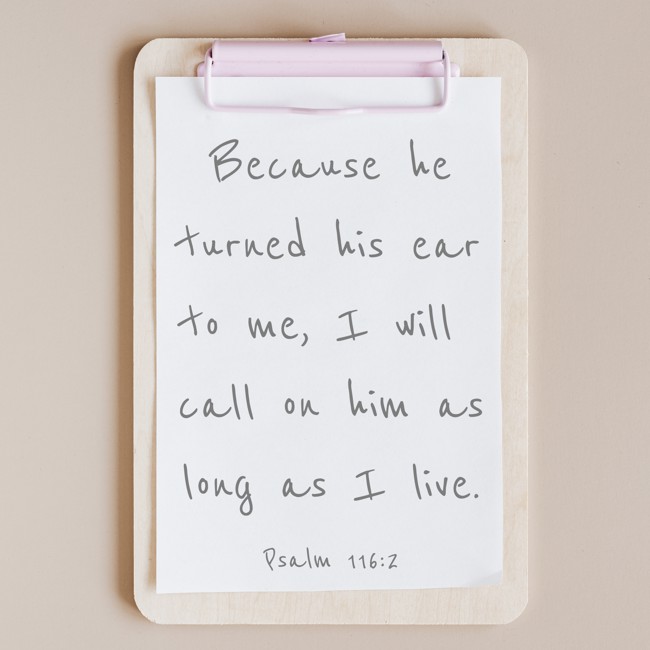 Because he
turned his ear
to me, I will
call on him as
long as I live.
Psalm 116:2